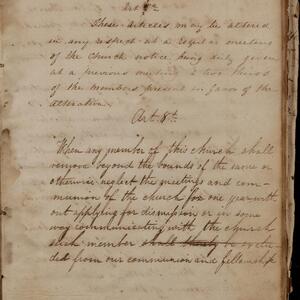 Art 7th
These articles may be altered
in any respect at a regular meeting
of the church notice being duly given
at a previous meeting & two thirds
of the members present in favor of the
alteration.
Art. 8th
When any member of this church shall
remove beyond the bounds of the same or
otherwise neglect the meetings and com-
munion of the church for one year with
out applying for dismission or in some
way communicating with the church
such member shall thereby be exclu
ded from our communion and fellowship